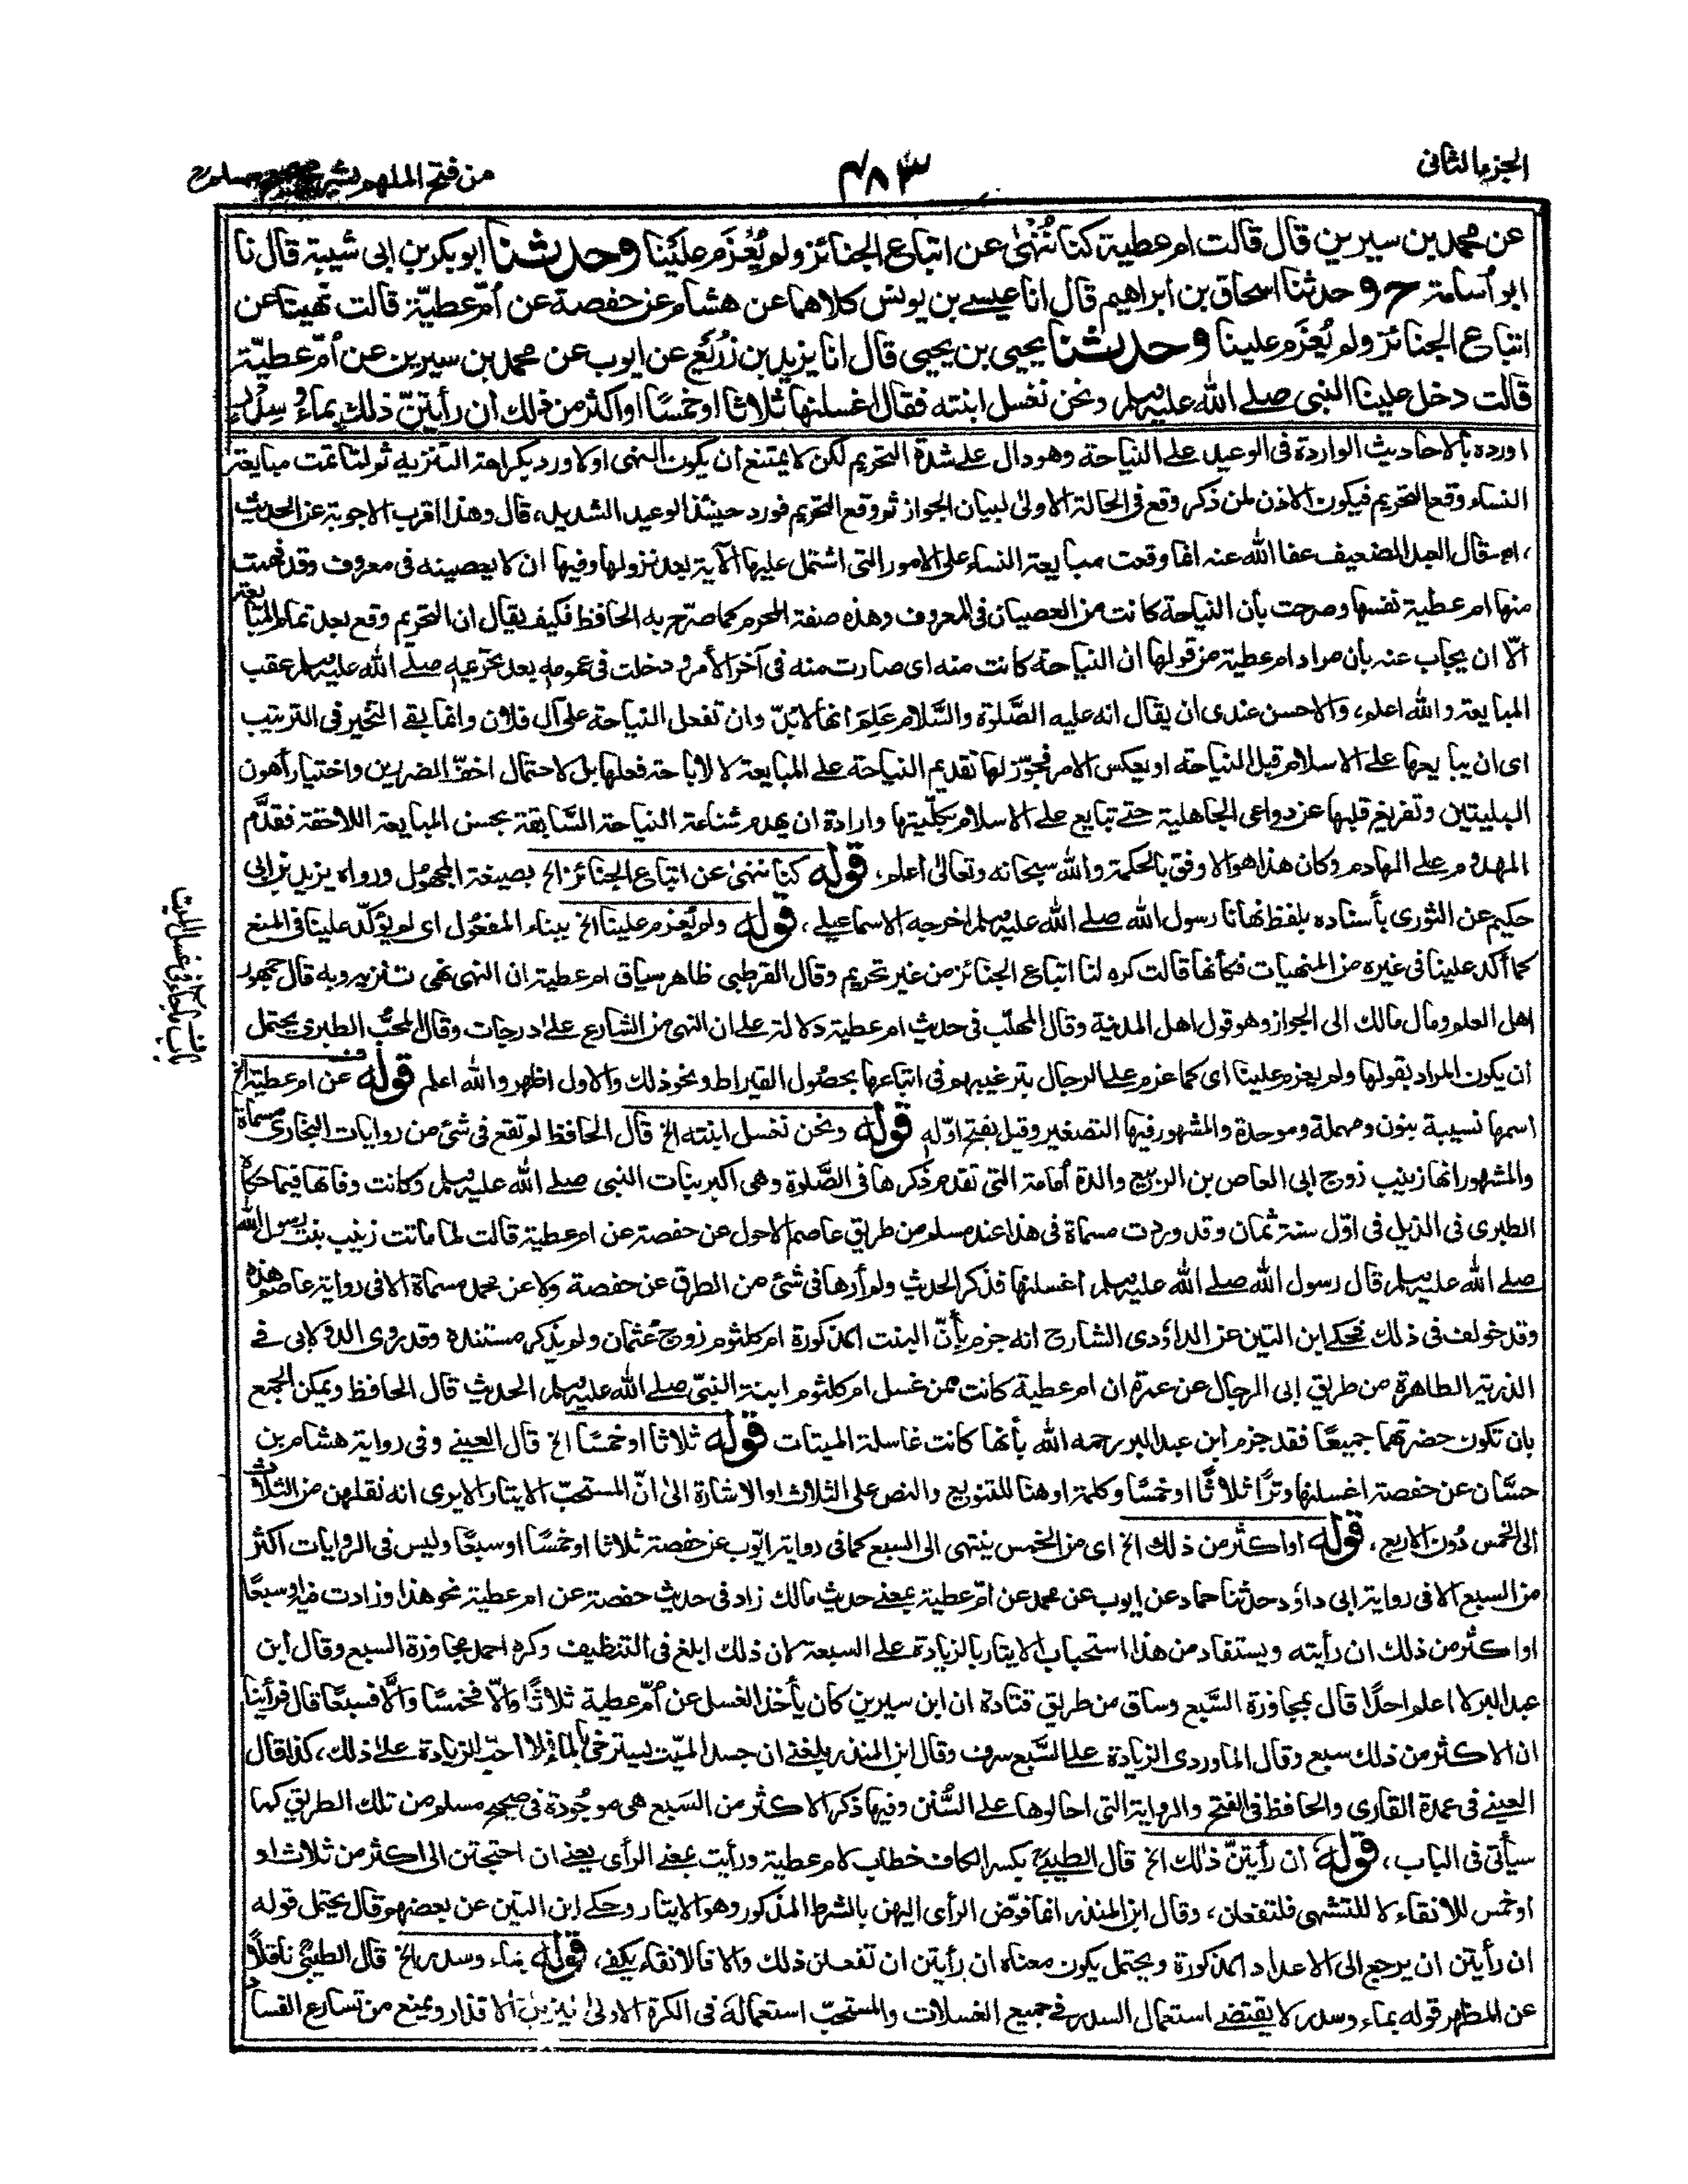 الجزء الثانى
٤٨٣
من فتح الملهم بشرح صحيح مسلم
عن محمد بن سيرين قال قالت ام عطية كنا نُنْهٰى عن اتباع الجنائز ولم يُعْزَم علَيْنا وحدثنا ابو بكر بن ابى شيبة قال نا
ابو اُسامة ح وحدثنا اسحاق بن ابراهيم قال انا عيسے بن يونس كلاهما عن هشام عن حفصة عن اُمّ عطيّة قالت نُهينا عن
اتباع الجنائز ولم يُعْزَم علينا وحدثنا يحيى بن يحيى قال انا يزيد بن زُرَيْع عن ايوب عن محمد بن سيرين عن اُمّ عطيّة
قالت دخل علينا النبى صلے الله عليه وسلم ونحن نغسل ابنته فقال اغسلنها ثلاثا او خمسًا او اكثر من ذلك ان رأيتنّ ذلك بماء وسدر
اورده بالاحاديث الواردة فى الوعيد على النياحة وهو دال على شدة التحريم لكن لا يمتنع ان يكون النهى اولا ورد بكراهة التنزيه ثم لما تمت مبايعة
النساء وقع التحريم فيكون الاذن لمن ذكر وقع فى الحالة الاولىٰ لبيان الجواز ثم وقع التحريم فورد حينئذ الوعيد الشديد، قال وهذا اقرب الاجوبة عن الحديث
، اھ قال العبد الضعيف عفا الله عنه انما وقعت مبايعة النساء على الامور التى اشتمل عليها الآية بعد نزولها وفيها ان لا يعصينه فى معروف وقد فهمت
منها ام عطية نفسها وصرحت بأن النياحة كانت من العصيان فى المعروف وهذه صفة المحرم كما صرّح به الحافظ فكيف يقال ان التحريم وقع بعد تمام المبايعة
الّا ان يجاب عنه بأن مراد ام عطية من قولها ان النياحة كانت منه اى صارت منه فى آخر الأمر ودخلت فى عمومه بعد تحريمه صلے الله عليه وسلم عقب
المبايعة والله اعلم، والاحسن عندى ان يقال انه عليه الصَّلوٰة والسَّلام عَلِمَ انها لابُدّ وان تفعل النياحة على آل فلان وانما بقے التخير فى الترتيب
اى ان يبايعها على الاسلام قبل النياحة او بعكس الامر فجوّز لها تقديم النياحة على المبايعة لا لاباحة فعلها بل لاحتمال اخفّ الضررين واختيار أهون
البليتين وتفريغ قلبها عن دواعى الجاهلية حتے تبايع على الاسلام بكلّيتها وارادة ان يهدم شناعة النياحة السَّابقة بحسن المبايعة اللاحقة فقدَّم
المهدوم على الهادم وكان هذا هو الاوفق بالحكمة والله سبحانه وتعالىٰ اعلم، قوله كنا ننهىٰ عن اتباع الجنائز الخ بصيغة المجهول ورواه يزيد بن ابى
حكيم عن الثورى بأسناده بلفظ نهانا رسول الله صلے الله عليه وسلم اخرجه الاسماعيلے، قوله ولم يُعزم علينا الخ ببناء المفعُول اى لم يؤكّد علينا فى المنع
كما أكد علينا فى غيره من المنهيات فكأنها قالت كره لنا اتباع الجنائز من غير تحريم وقال القرطبى ظاهر سياق ام عطية ان النهى نهى تنزيه وبه قال جمهور
اهل العلم ومال مالك الى الجواز وهو قول اهل المدينة وقال المهلّب فى حديث ام عطية دلالة على ان النهى من الشارع على درجات وقال المحبّ الطبرى يحتمل
أن يكون المراد بقولها ولم يعزم علينا اى كما عزم على الرجال بترغيبهم فى اتباعها بحصُول القيراط ونحو ذلك والاول اظهر والله اعلم قوله عن ام عطية الخ
اسمها نسيبة بنون ومهملة وموحدة والمشهور فيها التصغير وقيل بفتح اوّله قوله ونحن نغسل ابنته الخ قال الحافظ لم تقع فى شئ من روايات البخارى مسماة
والمشهور انها زينب زوج ابى العاص بن الربيع والدة اُمامة التى تقدم ذكرها فى الصَّلوٰة وهى اكبر بنات النبى صلے الله عليه وسلم وكانت وفاتها فيما حكاه
الطبرى فى الذيل فى اوّل سنة ثمان وقد وردت مسماة فى هذا عند مسلم من طريق عاصم الاحول عن حفصة عن ام عطية قالت لما ماتت زينب بنت رسول الله
صلے الله عليه وسلم قال رسول الله صلے الله عليه وسلم اغسلنها فذكر الحديث ولم أرها فى شئ من الطرق عن حفصة ولا عن محمد مسماة الا فى رواية عاصم هذه
وقد خولف فى ذلك فحكے ابن التين عن الداؤدى الشارح انه جزم بأنّ البنت المذكورة ام كلثوم زوج عثمان ولم يذكر مستنده وقد روى الدولابى فے
الذرية الطاهرة من طريق ابى الرجال عن عمرة ان ام عطية كانت ممن غسل ام كلثوم ابنة النبىّ صلے الله عليه وسلم الحديث قال الحافظ ويمكن الجمع
بان تكون حضرتهما جميعًا فقد جزم ابن عبد البر رحمه الله بأنها كانت غاسلة الميتات قوله ثلاثا او خمسًا الخ قال العينے وفى رواية هشام بن
حسَّان عن حفصة اغسلنها وترًا ثلاثًا او خمسًا وكلمة او هنا للتنويع والنص على الثلاث او الاشارة الىٰ انّ المستحبّ الايتار الا يرى انه نقلهن من الثلاث
الى الخمس دُون الاربع، قوله او اكثر من ذلك الخ اى من الخمس ينتهى الى السبع كما فى رواية ايّوب عن حفصة ثلاثا او خمسًا او سبعًا وليس فى الروايات اكثر
من السبع الا فى رواية ابى داؤد حدثنا حماد عن ايوب عن محمد عن امّ عطية بمعنے حديث مالك زاد فى حديث حفصة عن ام عطية نحو هذا وزادت فيه او سبعًا
او اكثر من ذلك ان رأيته ويستفاد من هذا استحباب الايتار بالزيادة على السبعة لان ذلك ابلغ فى التنظيف وكره احمد مجاوزة السبع وقال ابن
عبد البر لا اعلم احدًا قال بمجاوزة السَّبع وساق من طريق قتادة ان ابن سيرين كان يأخذ الغسل عن اُمّ عطية ثلاثًا والّا فخمسًا والَّا فسبعًا قال فرأينا
ان الاكثر من ذلك سبع وقال الماوردى الزيادة على السَّبع سرف وقال ابن المنذر بلغنے ان جسد الميّت يسترخى بالماء فلا احبّ الزيادة على ذلك، كذا قال
العينے فى عمدة القارى والحافظ فى الفتح والرواية التى احالوها على السُّنن وفيها ذكر الاكثر من السَبع هى موجُودة فى صحيح مسلم من تلك الطريق كما
سيأتى فى الباب، قوله ان رأيتنّ ذلك الخ قال الطيبىّ بكسر الكاف خطاب لام عطية ورأيت بمعنے الرأى يعنے ان احتجتن الى اكثر من ثلاث او
او خمس للانقاء لا للتشهى فلتفعلن، وقال ابن المنذر انما فوّض الرأى اليهن بالشرط المذكور وهو الايتار وحكے ابن التين عن بعضهم قال يحتمل قوله
ان رأيتن ان يرجع الى الاعداد المذكورة ويحتمل يكون معناه ان رأيتن ان تفعلن ذلك والا فالانقاء يكفے، قوله بماء وسدر الخ قال الطيبىّ ناقلًا
عن المظهر قوله بماء وسدر لا يقتضے استعمال السدر فے جميع الغسلات والمستحبّ استعماله فى الكرة الاولىٰ ليزيل الاقذار ويمنع من تسارع الفساد
باب ما جاء فى غسل الميت